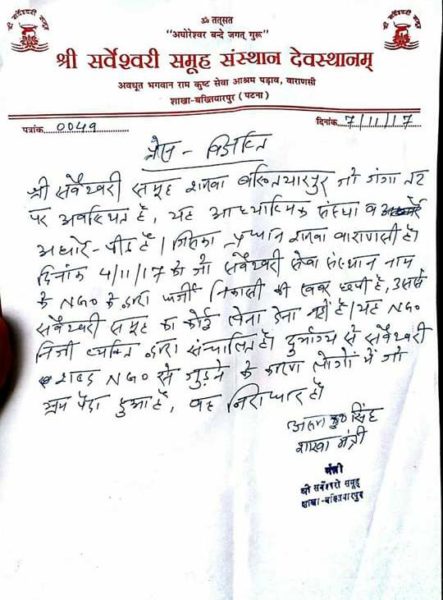 ॐ तत्सत
"अघोरेश्वर वन्दे जगत् गुरू"
श्री सर्वेश्वरी समूह संस्थान देवस्थानम्
अवधूत भगवान राम कुष्ठ सेवा आश्रम पड़ाव, वाराणसी
शाखा-बख्तियारपुर (पटना)
पत्रांक 0049 दिनांक 7/11/17
प्रेस - विज्ञप्ति
श्री सर्वेश्वरी समूह शाखा बख्तियारपुर जो गंगा तट
पर अवस्थित है, यह आध्यात्मिक संस्था व
अघोर-पीठ है। जिसका प्रधान शाखा वाराणसी है।
दिनांक 4/11/17 को जो सर्वेश्वरी सेवा संस्थान नाम
के NGO के द्वारा फर्जी निकासी की खबर छपी है, उससे
सर्वेश्वरी समूह का कोई लेना देना नहीं है। यह NGO
निजी व्यक्ति द्वारा संचालित है। दुर्भाग्य से सर्वेश्वरी
शब्द NGO से जुड़ने के कारण लोगों में जो
भ्रम पैदा हुआ है, वह निराधार है।
सिंह
शाखा मंत्री
मंत्री
श्री सर्वेश्वरी समूह
शाखा-बख्तियारपुर